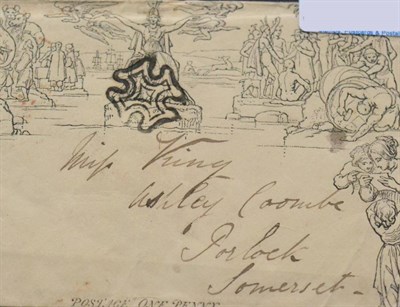 Miss King
Ashley Coombe
Porlock
Somerset
POSTAGE ONE PENNY